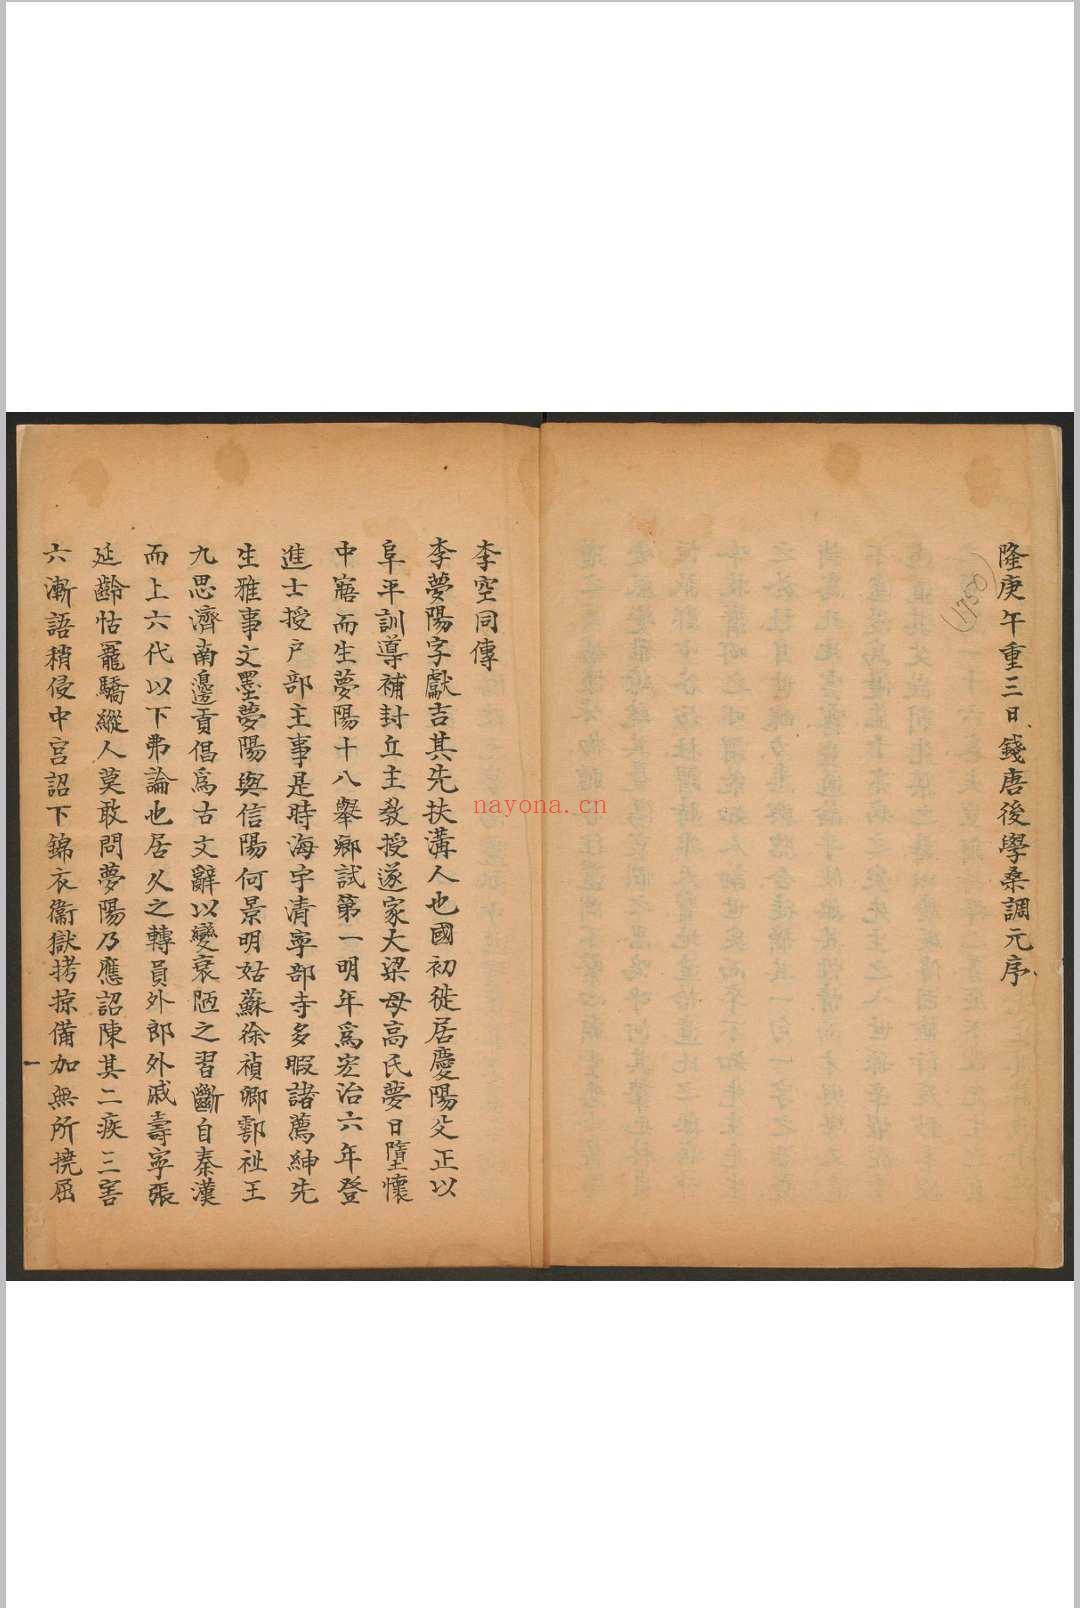 隆庚午重三日錢唐後學桑調元序
(1750)
李空同傳
李夢陽字獻吉其先扶溝人也國初徙居慶陽父正以
阜平訓導補封丘主教授遂家大梁母高氏夢日墮懷
中寤而生夢陽十八舉鄉試第一明年爲宏治六年登
進士授户部主事是時海宇清寧部寺多暇諸薦紳先
生雅事文墨夢陽與信陽何景明姑蘇徐禎卿鄠祉王
九思濟南邊貢倡爲古文辭以變衰陋之習斷自秦漢
而上六代以下弗論也居久之轉員外郎外戚壽寧張
延齡怙寵驕縱人莫敢問夢陽乃應詔陳其二疾三害
六漸語稍侵中宮詔下錦衣衞獄拷掠備加無所撓屈
一
nayona.cn